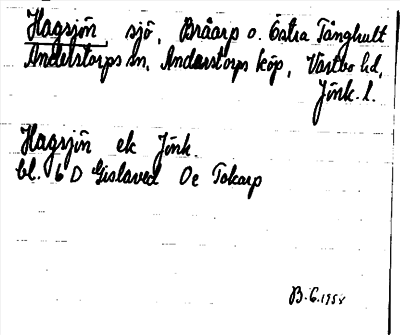 Hagsjön sjö, Bråarp o. Östra Tånghult
Anderstorps sn, Anderstorps köp, Västbo hd,
Jönk. l.
Hagsjön ek Jönk.
bl. 6 D Gislaved Oe Tokarp
B.G. 1958